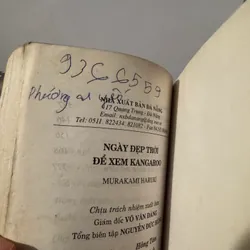 936 6559
Phường
NHÀ XUẤT BẢN ĐÀ NẴNG
417 Quang Trung - Đà Nẵng
Tel: 0511. 822434; 821082 - Fax
NGÀY ĐẸP TRỜI
ĐỂ XEM KANGAROO
MURAKAMI HARUKI
Chịu trách nhiệm xuất bản
Giám đốc VÕ VĂN ĐÁNG
Tổng biên tập NGUYỄN ĐỨC